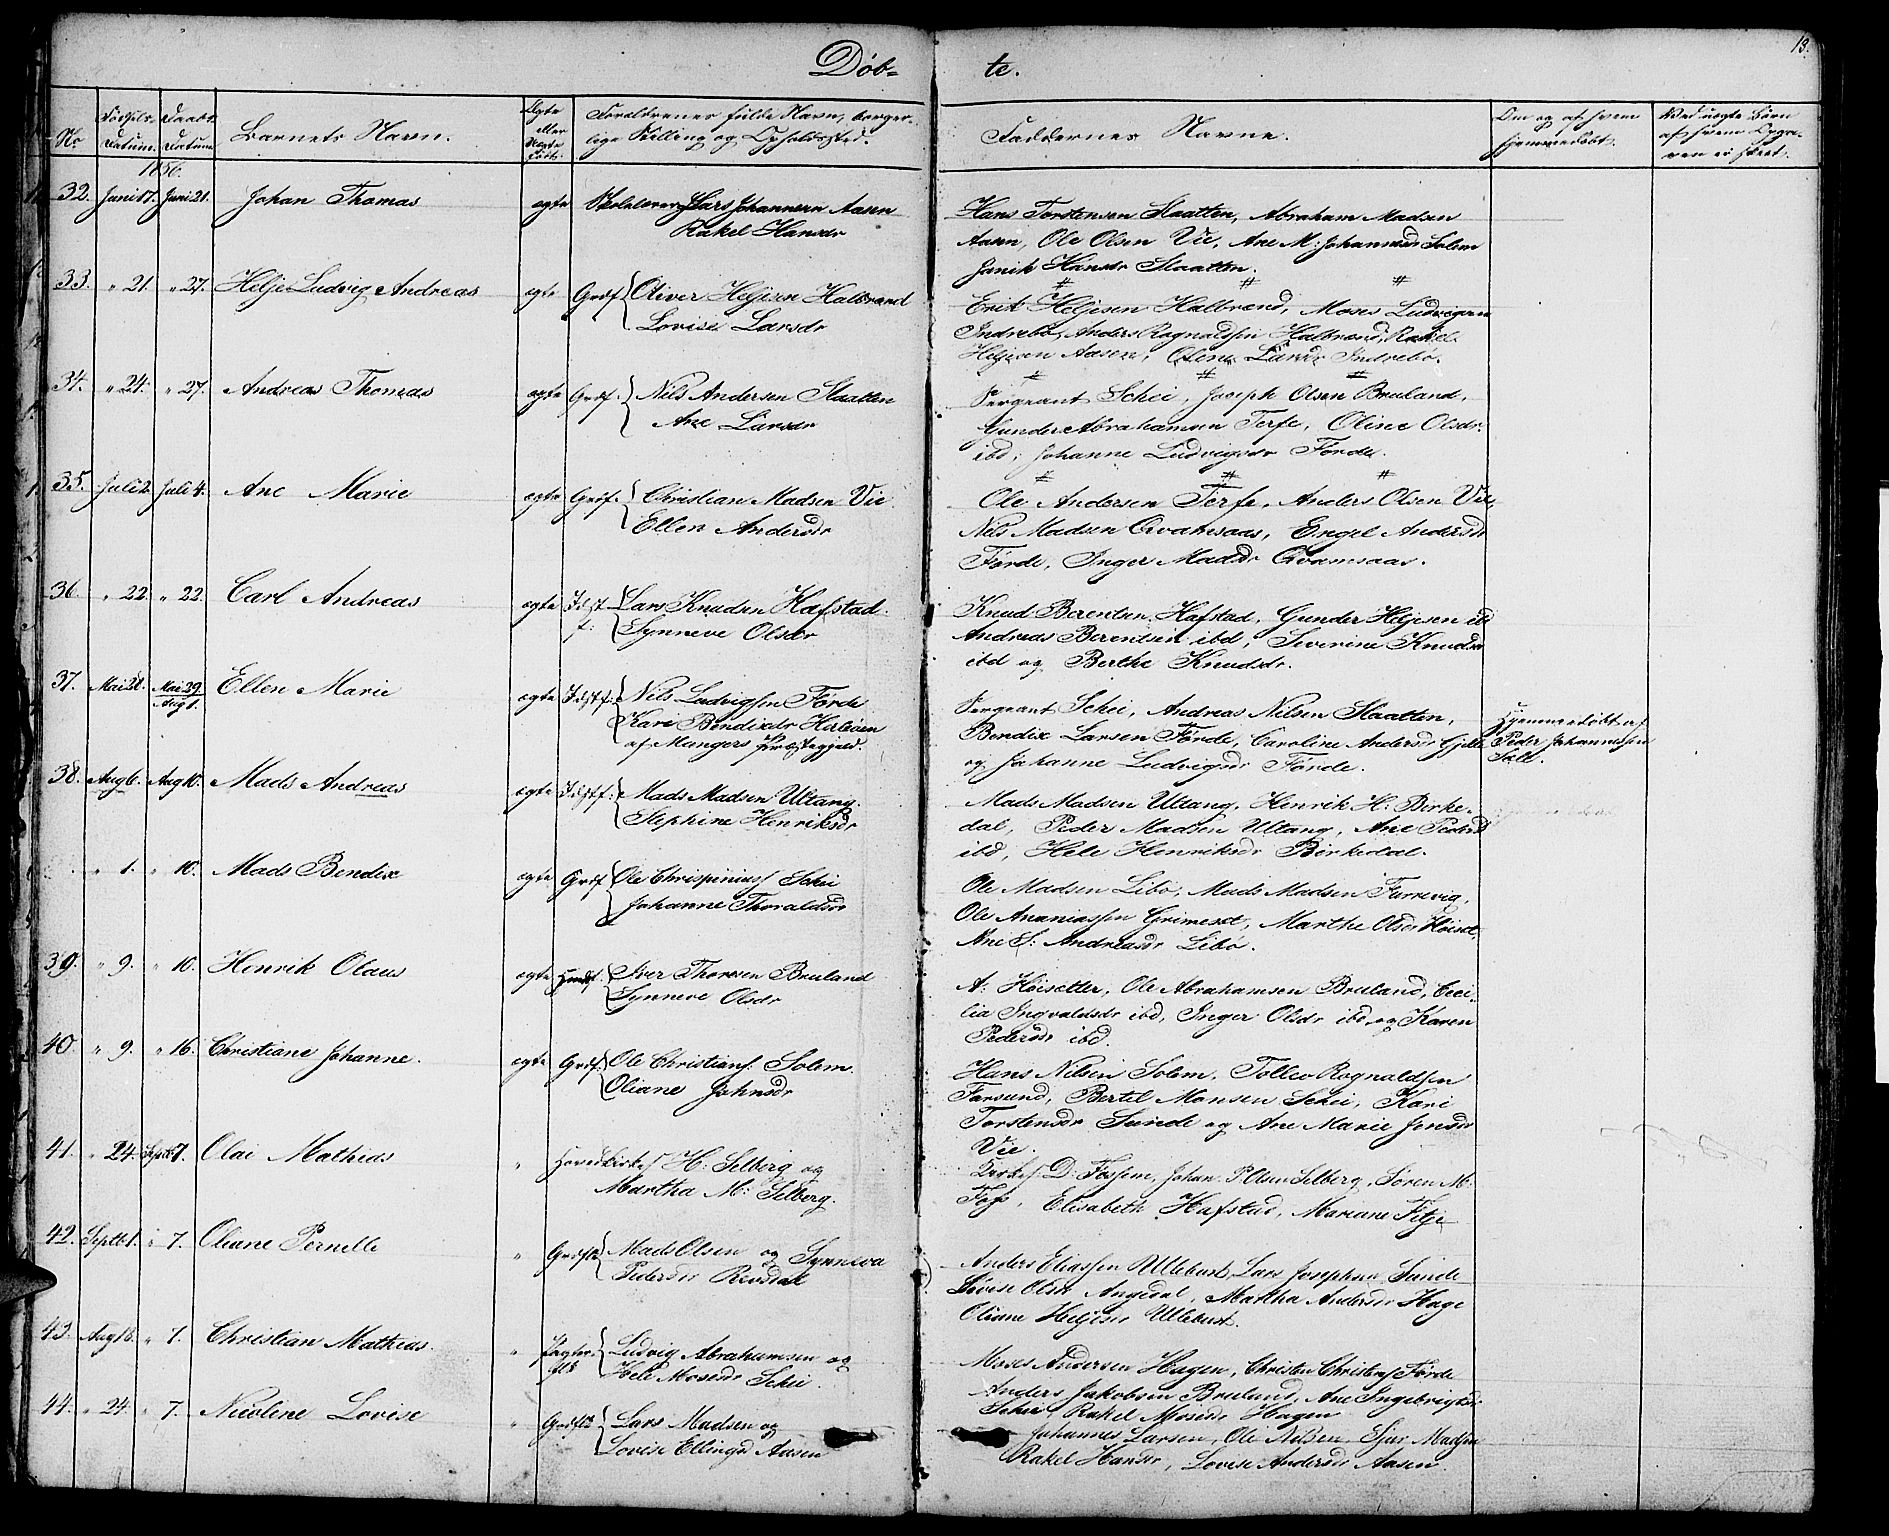 Døb-
te.
13.
No
Fødsels-
Datum.
Daabs-
Datum
Barnets Navn.
Ægte
eller
Uægte
født.
Forældrenes fulde Navn, borger-
lige Stilling og Opholdssted.
Faddernes Navne.
Om og af hvem
hjemmedøbt.
Ved uægte Børn
1856.
32. Juni 17. Juni 21. Johan Thomas ægte Skolelærer Lars Johannesen Aasen
Rakel Hansdr
Hans Torstensen Slaatten, Abraham Madsen
Aasen, Ole Olsen Vie, Ane M: Johannesdr Solem
Janik Hansdr Slaatten.
33. " 21. " 27. Helje Ludvig Andreas ægte Grdf. Oliver Heljesen Halbrænd
Lovise Larsdr
Erik Heljesen Halbrænd, Moses Ludvigsen
Indrebø, Anders Ragnaldsen Halbrænd, Rakel
Heljesen Aasen, Oline Larsdr Indrebø.
34. " 24. " 27. Andreas Thomas ægte Grdf. Nils Andersen Slaatten
Ane Larsdr
Sergeant Schei, Joseph Olsen Bruland,
Gunder Abrahamsen Terfe, Oline Olsdr
ibd, Johanne Ludvigsdr Førde.
35. Juli 2. Juli 4. Ane Marie ægte Grdf. Christian Madsen Vie
Ellen Andersdr
Ole Andersen Terfe, Anders Olsen Vie,
Nils Madsen Qvamsaas, Engel Andersdr
Førde, Inger Madsdr Qvamsaas.
36. " 22. " 22. Carl Andreas ægte Lars Knudsen Hafstad.
Synneve Olsdr
Knud Berentsen Hafstad, Gunder Heljesen ibd
Andreas Berentsen ibd, Severine Knudsdr
ibd og Berthe Knudsdr.
37. Mai 28. Mai 29. Ellen Marie ægte Nils Ludvigsen Førde
Aug 1.
Kari Bendixdr
af Mangers Præstegjeld.
Sergeant Schei, Andreas Nilsen Slaatten,
Bendix Larsen Førde, Caroline Andersdr
og Johanne Ludvigsdr Førde.
Hjemmedøbt af
Peder Johannessen
38. Aug 6. Aug 10. Mads Andreas ægte Mads Madsen Ultang.
Stephine Henriksdr
Mads Madsen Ultang, Henrik H: Birke-
dal, Peder Madsen Ultang, Ane Pedersdr
ibd, Hele Henriksdr Birkedal.
" 1. " 10. Mads Bendix ægte Grdf. Ole Chrispiniusf Schei
Johanne Thoraldsdr
Ole Madsen Libø, Mads Madsen Farsevig,
Ole Ananiassen Grimeset, Marthe Olsdr
Ane S: Andreasdr Libø.
39. " 9. " 10. Henrik Olaus ægte Iver Thoresen Bruland
Synneve Olsdr
A: Høisetter, Ole Abrahamsen Bruland, Ceci-
lia Ingvaldsdr ibd, Inger Olsdr ibd og Karen
Pedersdr ibd.
40. " 9. " 16. Christiane Johanne. ægte Grdf. Ole Christiansf: Solem.
Oliane Johnsdr
Hans Nilsen Solem, Tollev Ragnaldsen
Farsund, Bertil Monsen Schei, Kari
Torstensdr Sunde og Ane Marie Jensdr
Vie.
41. " 24. Septb 7. Olai Mathias " H: Selberg og
Martha M: Selberg.
D: Fossem, Johan P. Olsen Selberg, Søren M:
Foss, Elisabeth Hafstad, Mariane Fitje
42. Septb 1. " 7. Oliane Pernelle " Mads Olsen og Synneva
Pedersdr Revsdal
Anders Eliassen Ullebust, Lars Josephsen Sunde
Lovise Olsdr Angedal, Martha Andersdr Hage
Oliane Heljesdr Ullebust.
43. Aug 16. " 7. Christian Mathias. " Ludvig Abrahamsen og
Hele Mosesdr Schei.
Moses Andersen Hagen, Christen Christensf Førde
Anders Jakobsen Bruland, Ane Ingebrigtsdr
Schei, Rakel Mosesdr Hagen
44. " 24. " 7. Nicoline Lovise " Lars Madsen og
Lovise Ellingsd Aasen
Johannes Larsen, Ole Nilsen, Sjur Madsen
Rakel Hansdr, Lovise Andersdr Aasen.